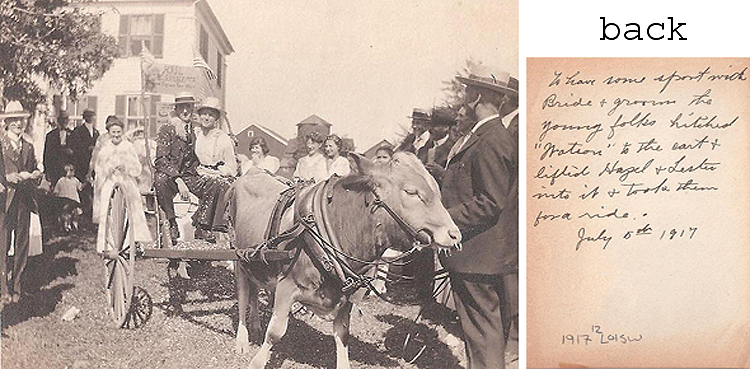 back
To have some sport with
Bride & groom the
young folks hitched
"Watson" to the cart &
lifted Hazel & Lester
into it & took them
for a ride.
July 5th 1917
1917